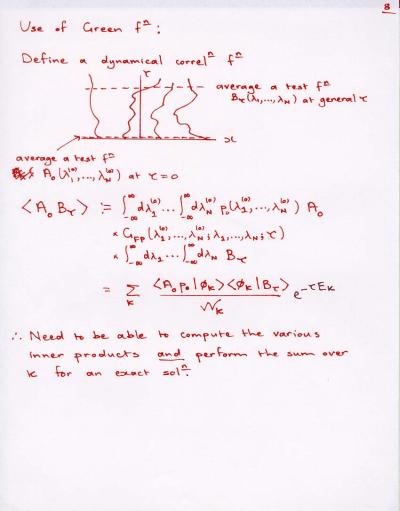 8
Use of Green fⁿ:
Define a dynamical correlⁿ fⁿ
τ
average a test fⁿ
B_τ(λ₁,...,λ_N) at general τ
x
average a test fⁿ
A₀(λ₁^(0),...,λ_N^(0)) at τ=0
⟨A₀ B_τ⟩ := ∫_{-∞}^{∞} dλ₁^(0) ... ∫_{-∞}^{∞} dλ_N^(0) p₀(λ₁^(0),...,λ_N^(0)) A₀
× G_FP(λ₁^(0),...,λ_N^(0); λ₁,...,λ_N; τ)
× ∫_{-∞}^{∞} dλ₁ ... ∫_{-∞}^{∞} dλ_N B_τ
= Σ_κ ⟨A₀ p₀|φ_κ⟩⟨φ_κ|B_τ⟩ / 𝒩_κ e^{-τE_κ}
∴ Need to be able to compute the various
inner products and perform the sum over
κ for an exact solⁿ.